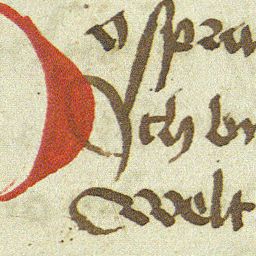 Do spra
Ich bi
welt